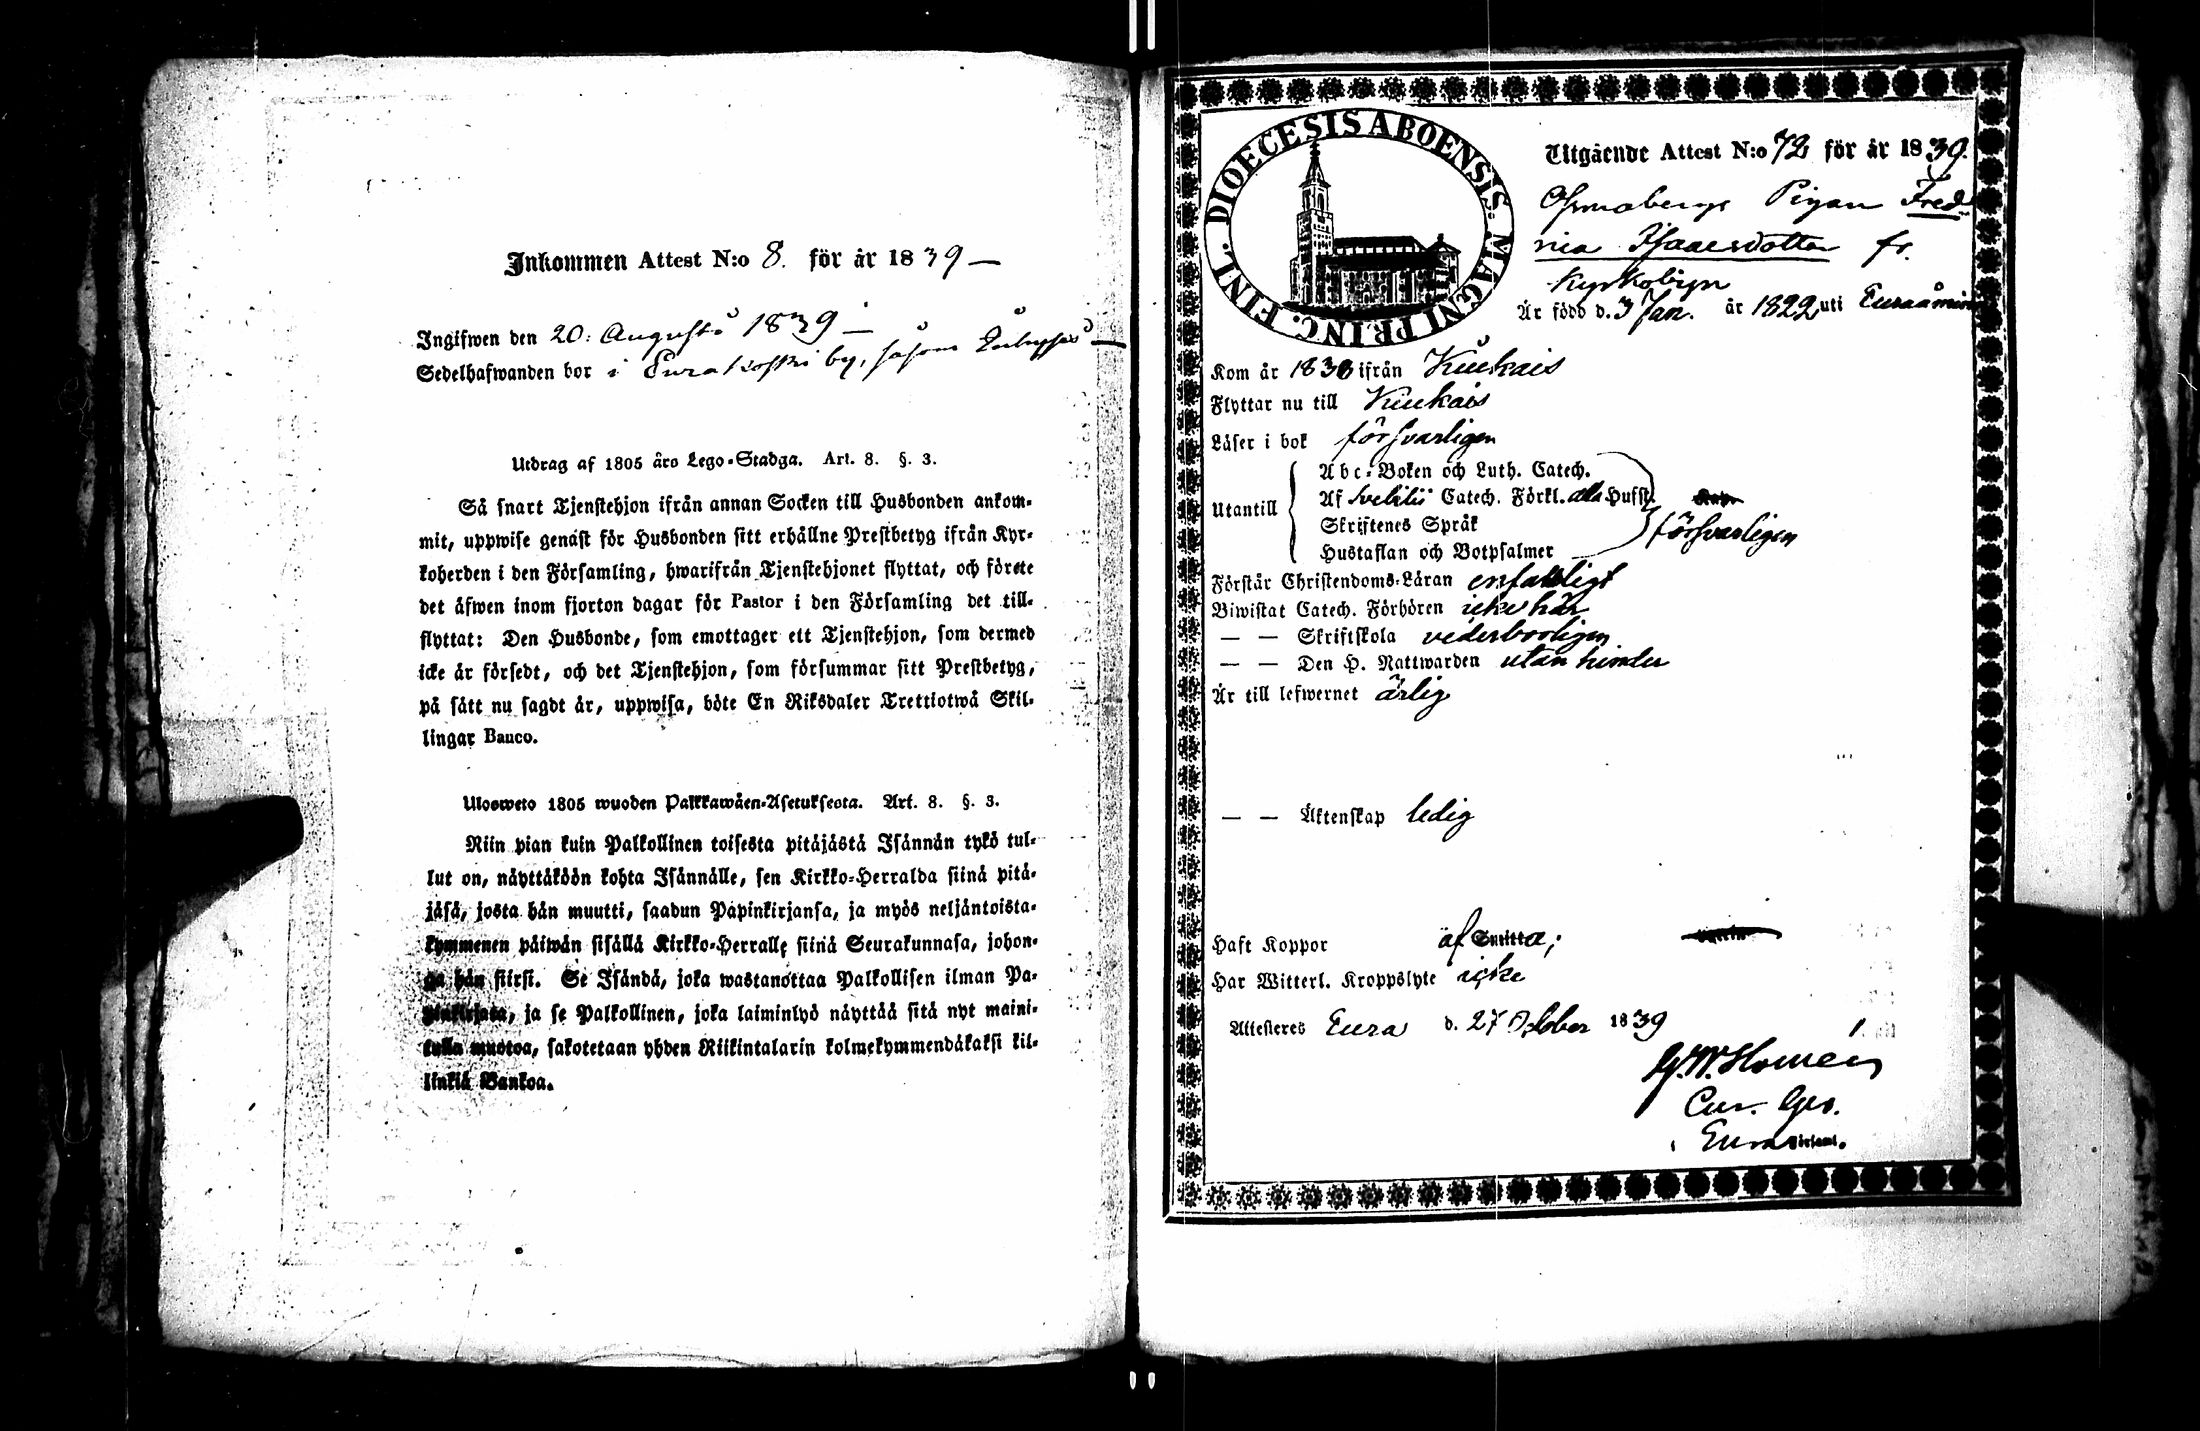 Inkommen Attest N:o 8. för år 1839 —
Ingifwen den 20: Augusti 1839 —
Sedelhafwanden bor i Eurakoski by, såsom
Utdrag af 1805 års Lego-Stadga. Art. 8. §. 3.
Så snart Tjenstehjon ifrån annan Socken till Husbonden ankom-
mit, uppwise genast för Husbonden sitt erhållne Prestbetyg ifrån Kyr-
koherden i den Församling, hwarifrån Tjenstehjonet flyttat, och förete
det äfwen inom fjorton dagar för Pastor i den Församling det till-
flyttat: Den Husbonde, som emottager ett Tjenstehjon, som dermed
icke är försedt, och det Tjenstehjon, som försummar sitt Prestbetyg,
på sätt nu sagdt är, uppwisa, böte En Riksdaler Trettiotwå Skil-
lingar Banco.
Ulosweto 1805 wuoden Palkkawäen-Asetuksesta. Art. 8. §. 3.
Niin pian kuin Palkollinen toisesta pitäjästä Isännän tykö tul-
lut on, näyttäköön kohta Isännälle, sen Kirkko-Herralda siinä pitä-
jäsä, josta hän muutti, saadun Papinkirjansa, ja myös neljäntoista-
kymmenen päiwän sisällä Kirkko-Herralle siinä Seurakunnasa, johon-
ga hän siirsi. Se Isändä, joka wastanottaa Palkollisen ilman Pa-
pinkirjata, ja se Palkollinen, joka laiminlyö näyttää sitä nyt maini-
tulla muotoa, sakotetaan yhden Riikintalarin kolmekymmendäkaksi kil-
linkiä Bankoa.
DIOECESIS ABOENSIS. MAGNI PRINC. FINL.
Utgående Attest N:o 72 för år 1839.
Pigan Fred-
rica Isaacsdotter fr.
Kyrkobyn
Är född d. 3 Jan. år 1822 uti Euraåminne
Kom år 1838 ifrån Kiukais
Flyttar nu till Kiukais
Läser i bok försvarligen
Utantill
Abc-Boken och Luth. Catech.
Af Svebilii Catech. Förkl. alla Hufst.
Skriftenes Språk
Hustaflan och Botpsalmer
försvarligen
Förstår Christendoms-Läran enfaldigt
Biwistat Catech. Förhören icke här
— — Skriftskola vederborligen
— — Den H. Nattwarden utan hinder
Är till lefwernet ärlig
— — Äktenskap ledig
Haft Koppor
Har Witterl. Kroppslyte icke
Attesteres Eura d. 27 October 1839
G. W. Homen
Cur. Ges.
i Eura Förfaml.